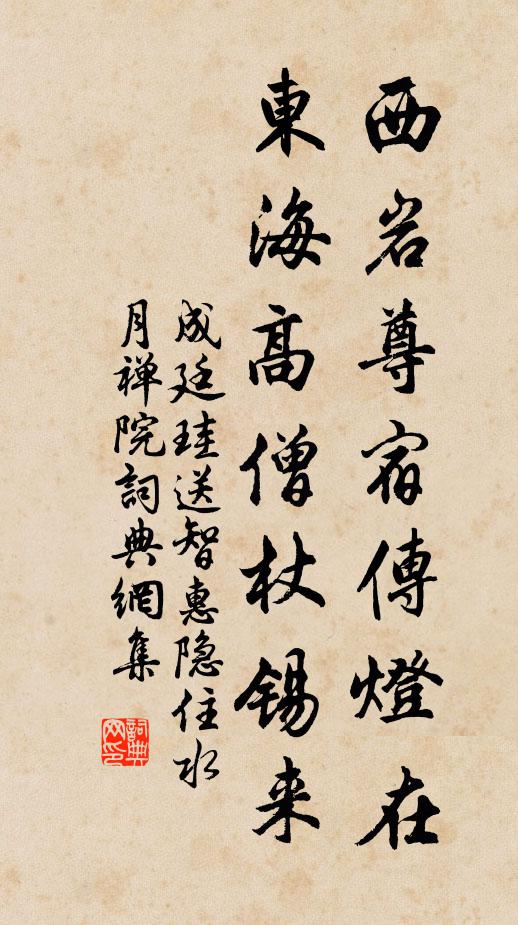 西岩尊宿傳燈在
東海高僧杖錫来
成廷珪送智惠隐住水
月禅院詞典網集
詞典网印